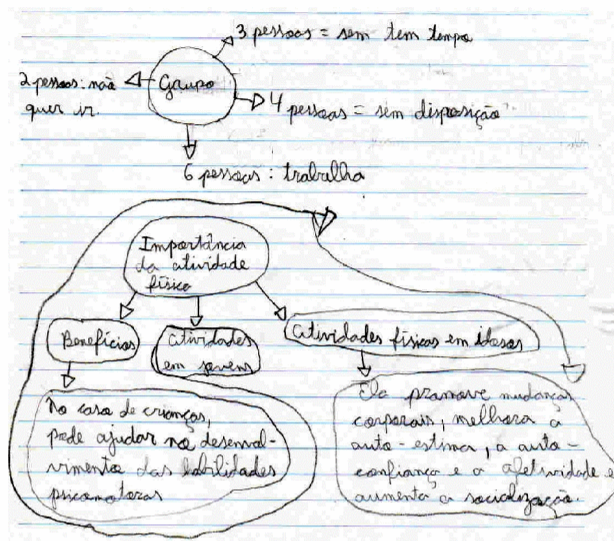 3 pessoas = sem tem tempo
2 pessoas: não
quer ir.
Grupo
4 pessoas = sem disposição
6 pessoas: trabalha
Importância
da atividade
física
Benefícios
Atividades
em jovens
Atividades físicas em idosos
No caso de crianças,
pode ajudar no desenvol-
vimento das habilidades
psicomotoras
Ela promove mudanças
corporais, melhora a
auto-estima, a auto-
confiança e a afetividade e
aumenta a socialização.